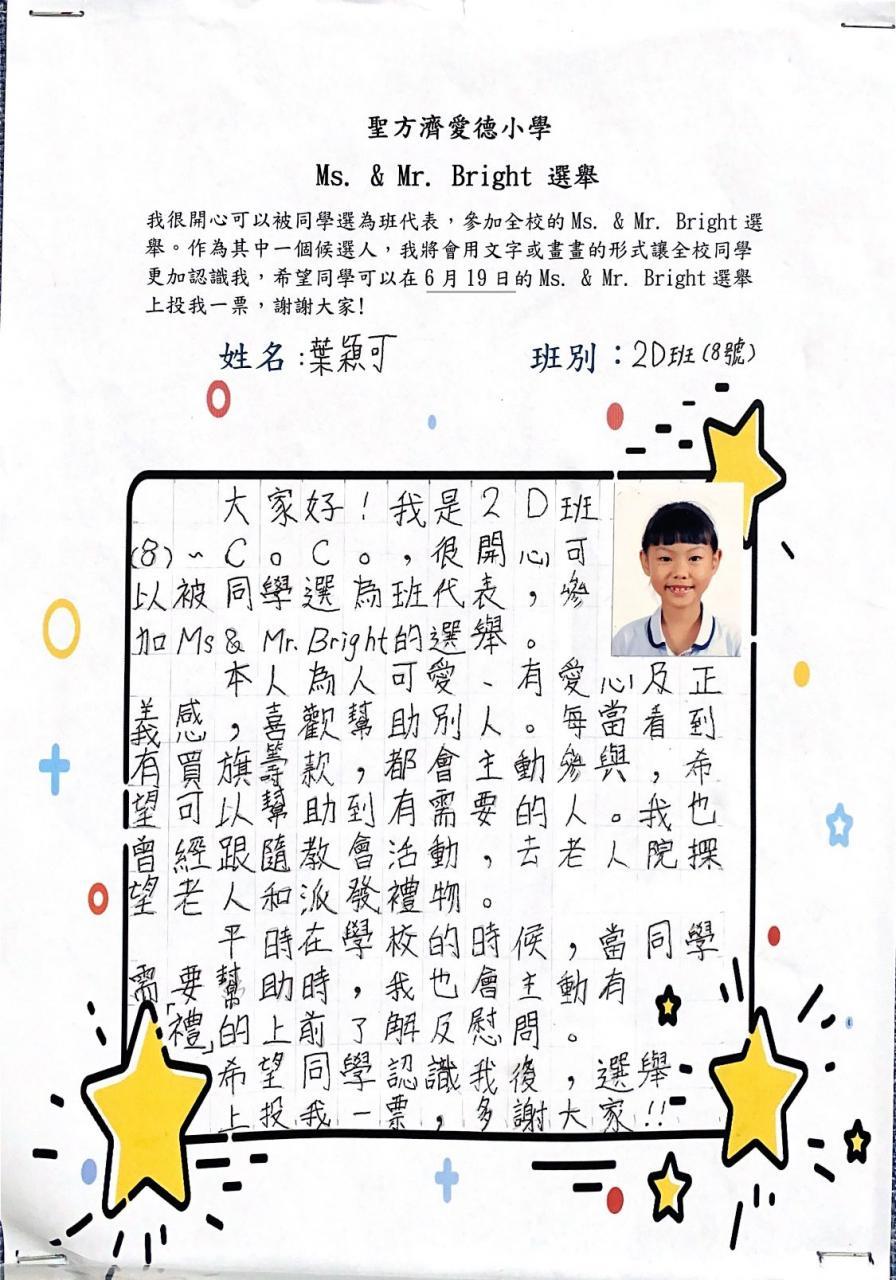 聖方濟愛德小學
Ms. & Mr. Bright 選舉
我很開心可以被同學選為班代表，參加全校的 Ms. & Mr. Bright 選
舉。作為其中一個候選人，我將會用文字或畫畫的形式讓全校同學
更加認識我，希望同學可以在 6 月 19 日的 Ms. & Mr. Bright 選舉
上投我一票，謝謝大家!
姓名:葉穎可 班別：2D班(8號)
大家好！我是2D班
(8)~C。C。，很開心可
以被同學選為班代表，參
加Ms & Mr. Bright的選舉。
本人為人可愛、有愛心及正
義感，喜歡幫助別人。每當看到
有買旗籌款，都會主動參與，希
望可以幫助到有需要的人。我也
曾經跟隨教會活動，去老人院探
望老人和派發禮物。
平時在學校的時候，當同學
需要幫助時，我也會主動有
「禮」的上前了解及慰問。
希望同學認識我後，選舉
上投我一票，多謝大家!!